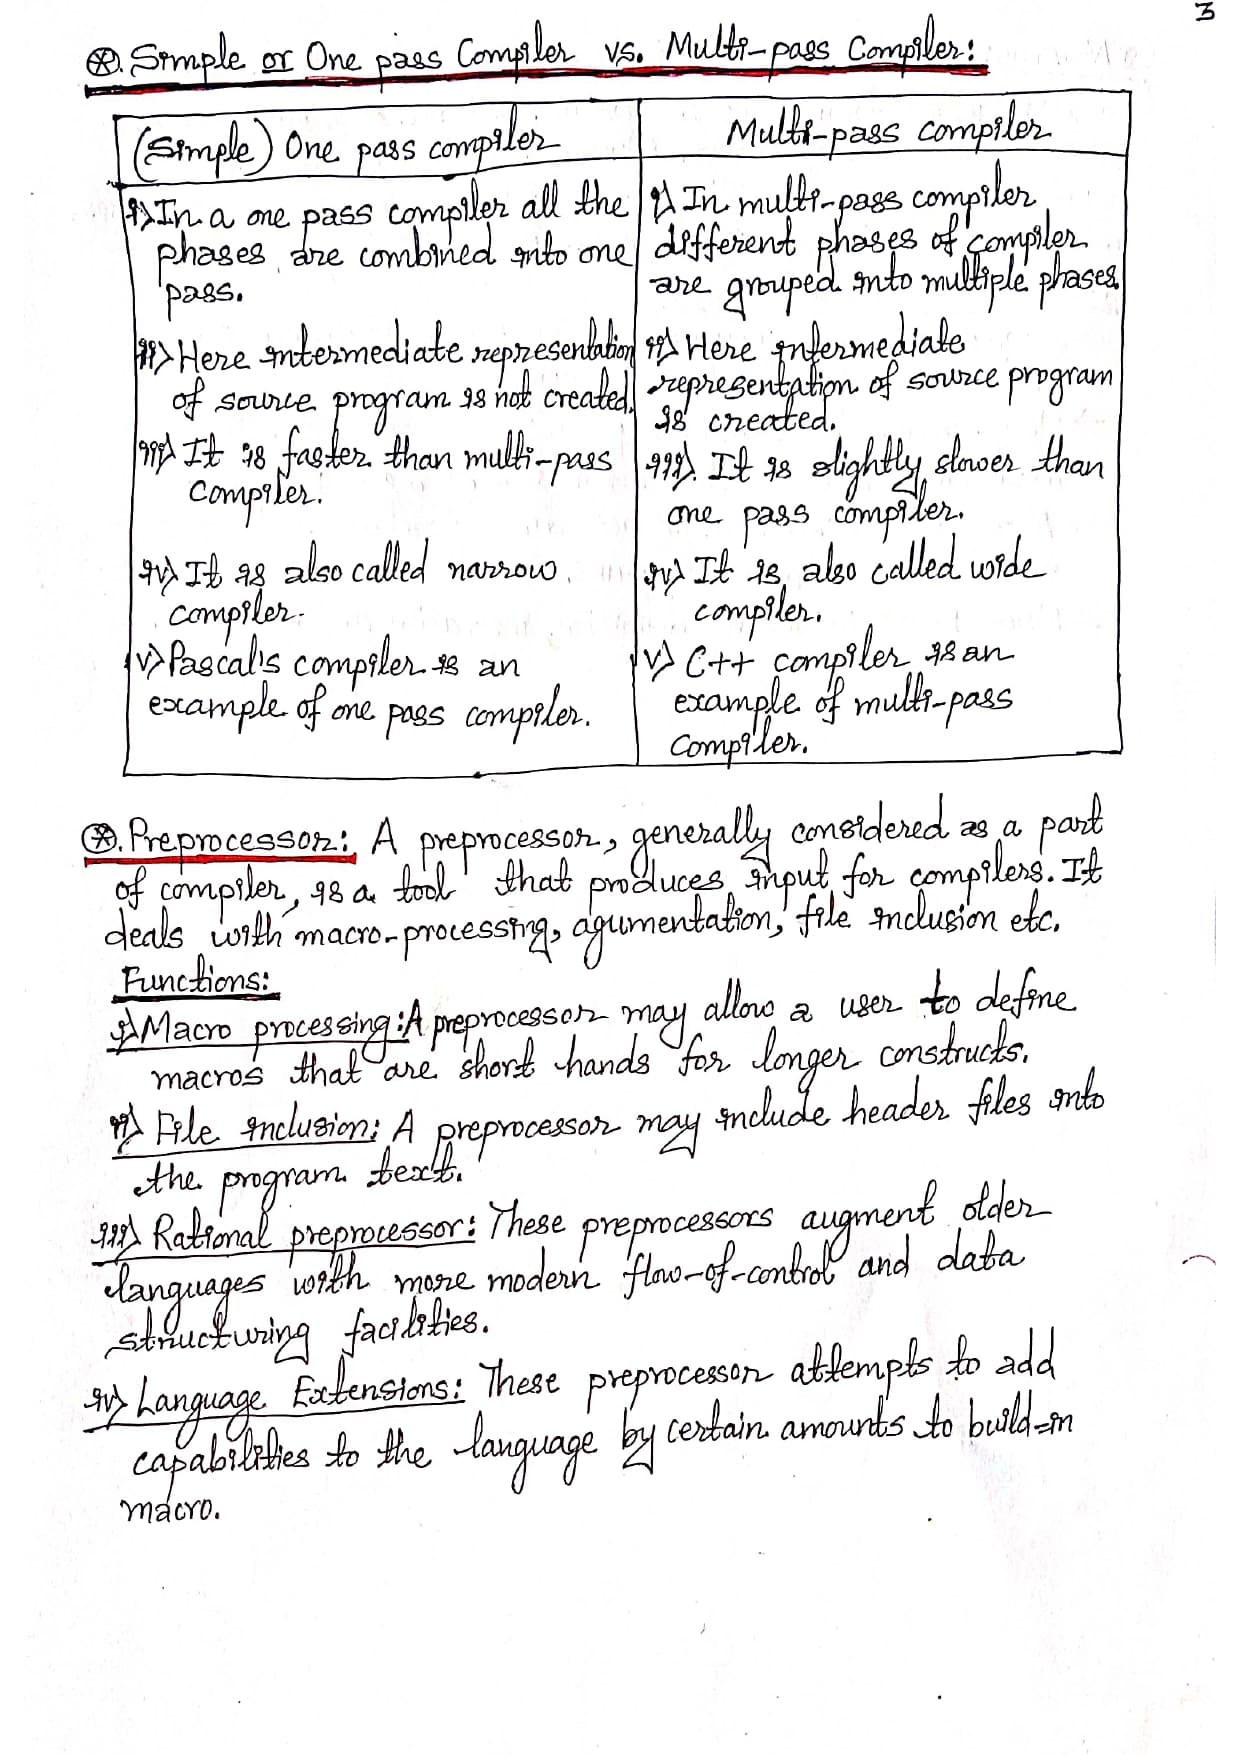 3
⊛. Simple or One pass Compiler vs. Multi-pass Compiler:
(Simple) One pass compiler
i) In a one pass compiler all the
phases are combined into one
pass.
ii) Here intermediate representation
of source program is not created.
iii) It is faster than multi-pass
Compiler.
iv) It is also called narrow
compiler.
v) Pascal's compiler is an
example of one pass compiler.
Multi-pass compiler
i) In multi-pass compiler
different phases of compiler
are grouped into multiple phases.
ii) Here intermediate
representation of source program
is created.
iii) It is slightly slower than
one pass compiler.
iv) It is also called wide
compiler.
v) C++ compiler is an
example of multi-pass
Compiler.
⊛. Preprocessor: A preprocessor, generally considered as a part
of compiler, is a tool that produces input for compilers. It
deals with macro-processing, agumentation, file inclusion etc.
Functions:
i) Macro processing: A preprocessor may allow a user to define
macros that are short hands for longer constructs.
ii) File inclusion: A preprocessor may include header files into
the program text.
iii) Rational preprocessor: These preprocessors augment older
languages with more modern flow-of-control and data
structuring facilities.
iv) Language Extensions: These preprocessor attempts to add
capabilities to the language by certain amounts to build-in
macro.